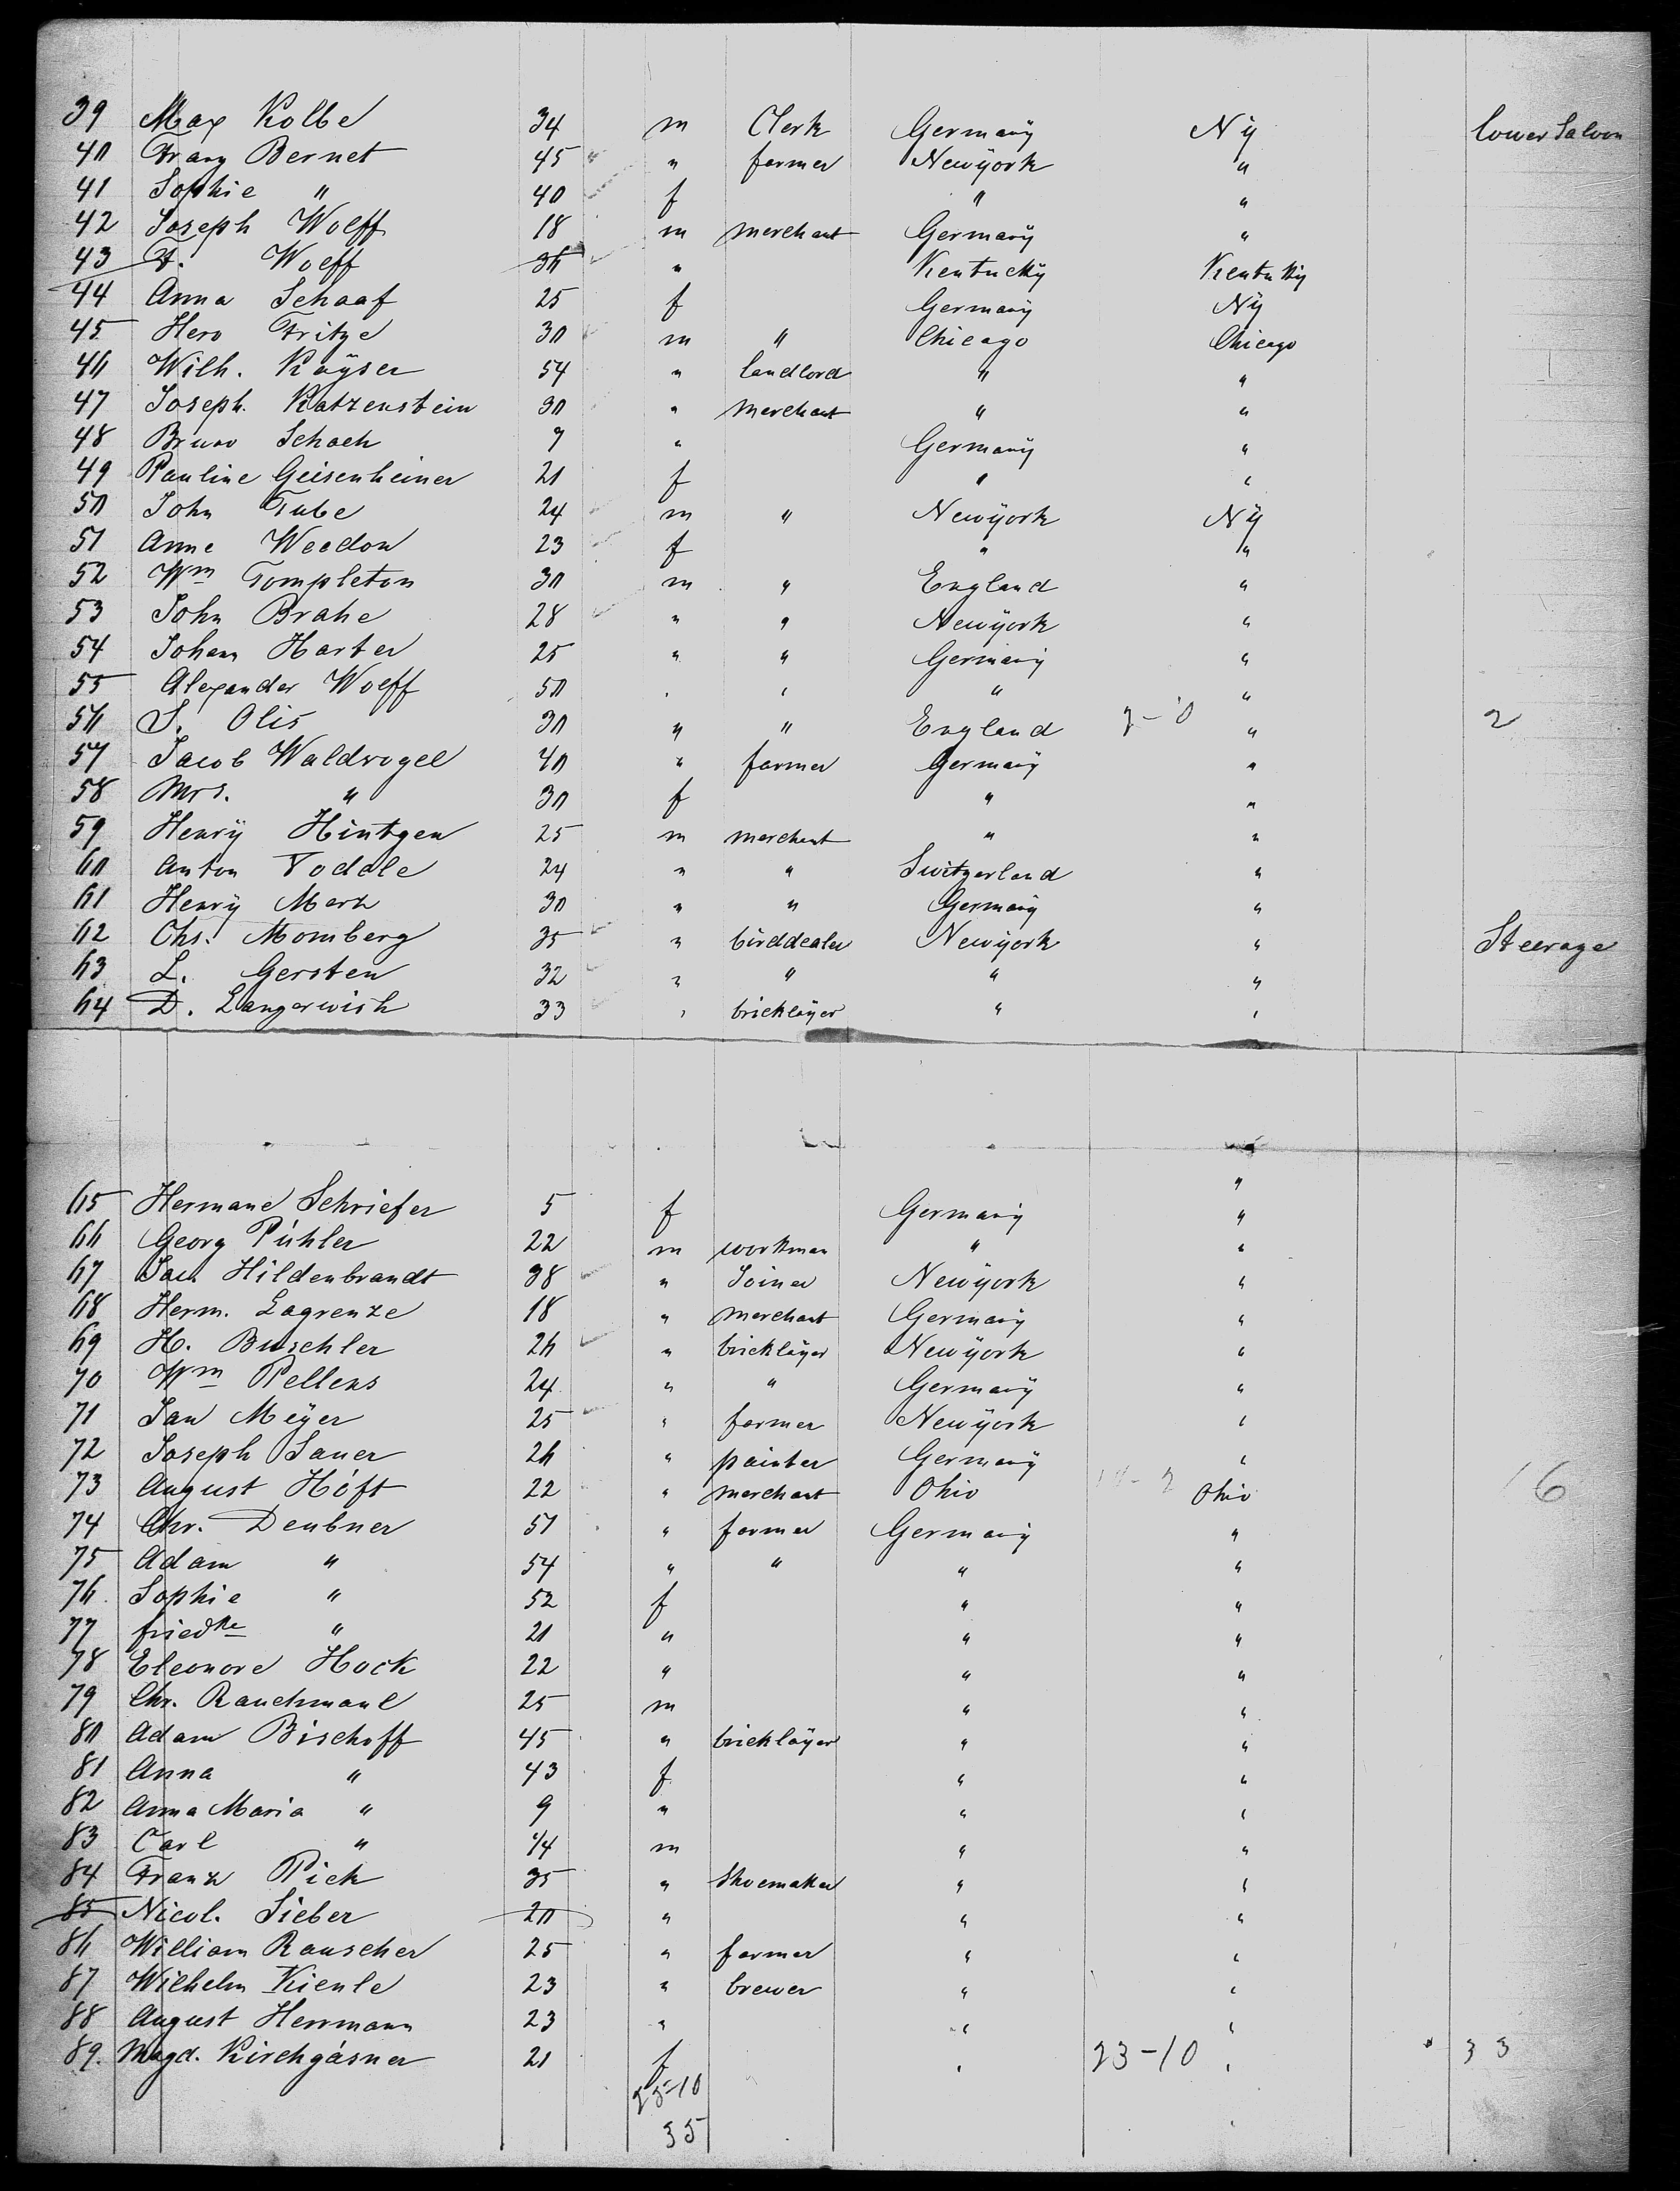 39 Max Kolbe 34 m Clerk Germany Ny lower Saloon
40 Franz Bernet 45 " farmer Newyork "
41 Sophie " 40 f " "
42 Joseph Wolff 18 m merchant Germany "
43 F. Wolff 36 " Kentucky Kentucky
44 Anna Schaaf 25 f Germany Ny
45 Hero Fritze 30 m " Chicago Chicago
46 Wilh. Kayser 54 " landlord " "
47 Joseph Katzenstein 30 " merchant " "
48 Bruno Schoch 7 " Germany "
49 Pauline Geisenheiner 21 f " "
50 John Tube 24 m " Newyork Ny
51 Anne Weedon 23 f " "
52 Wm Tompleton 30 m " England "
53 John Brahe 28 " " Newyork "
54 Johann Harter 25 " " Germany "
55 Alexander Wolff 50 " " " "
56 S. Olis 30 " " England " 2
57 Jacob Waldvogel 40 " farmer Germany "
58 Mrs. " 30 f " "
59 Henry Hintgen 25 m merchant " "
60 Anton Vodale 24 " " Switzerland "
61 Henry Merk 30 " " Germany "
62 Chs. Momberg 35 " birddealer Newyork " Steerage
63 L. Gersten 32 " " " "
64 D. Langerwish 33 " bricklayer " "
"
65 Hermane Schriefer 5 f Germany "
66 Georg Pühler 22 m workman " "
67 Jac. Hildenbrandt 38 " Joiner Newyork "
68 Herm. Lagrenze 18 " merchant Germany "
69 H. Buschler 26 " bricklayer Newyork "
70 Wm Pellens 24 " " Germany "
71 Jan Meyer 25 " farmer Newyork "
72 Joseph Sauer 26 " painter Germany "
73 August Höft 22 " merchant Ohio Ohio 16
74 Chr. Deubner 51 " farmer Germany "
75 Adam " 54 " " " "
76 Sophie " 52 f " "
77 friedke " 21 " " "
78 Eleonore Hock 22 " " "
79 Chr. Rauchmaul 25 m " "
80 Adam Bischoff 45 " bricklayer " "
81 Anna " 43 f " "
82 Anna Maria " 9 " " "
83 Carl " 1/4 m " "
84 Franz Pick 35 " Shoemaker " "
85 Nicol. Sieber 20 " " "
86 William Rauscher 25 " farmer " "
87 Wilhelm Kienle 23 " brewer " "
88 August Herrmann 23 " " "
89. Magd. Kirchgäsner 21 f " 23-10 " 33
25-10
35